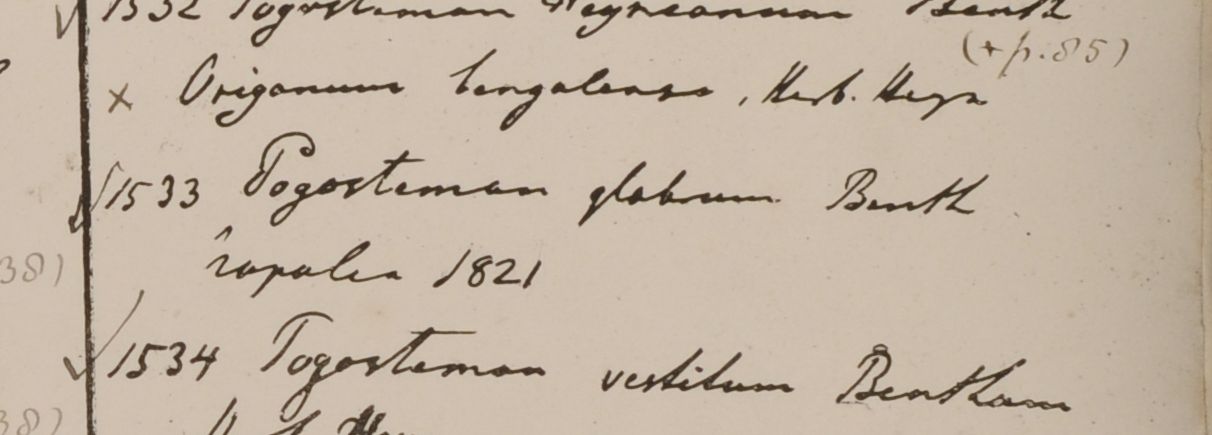 1532 Pogostemon Heyneanum Benth
(+ p. 85)
x Origanum bengalense, Herb. Heyn
1533 Pogostemon glabrum Benth
38) Napalia 1821
1534 Pogostemon vestitum Bentham
38)